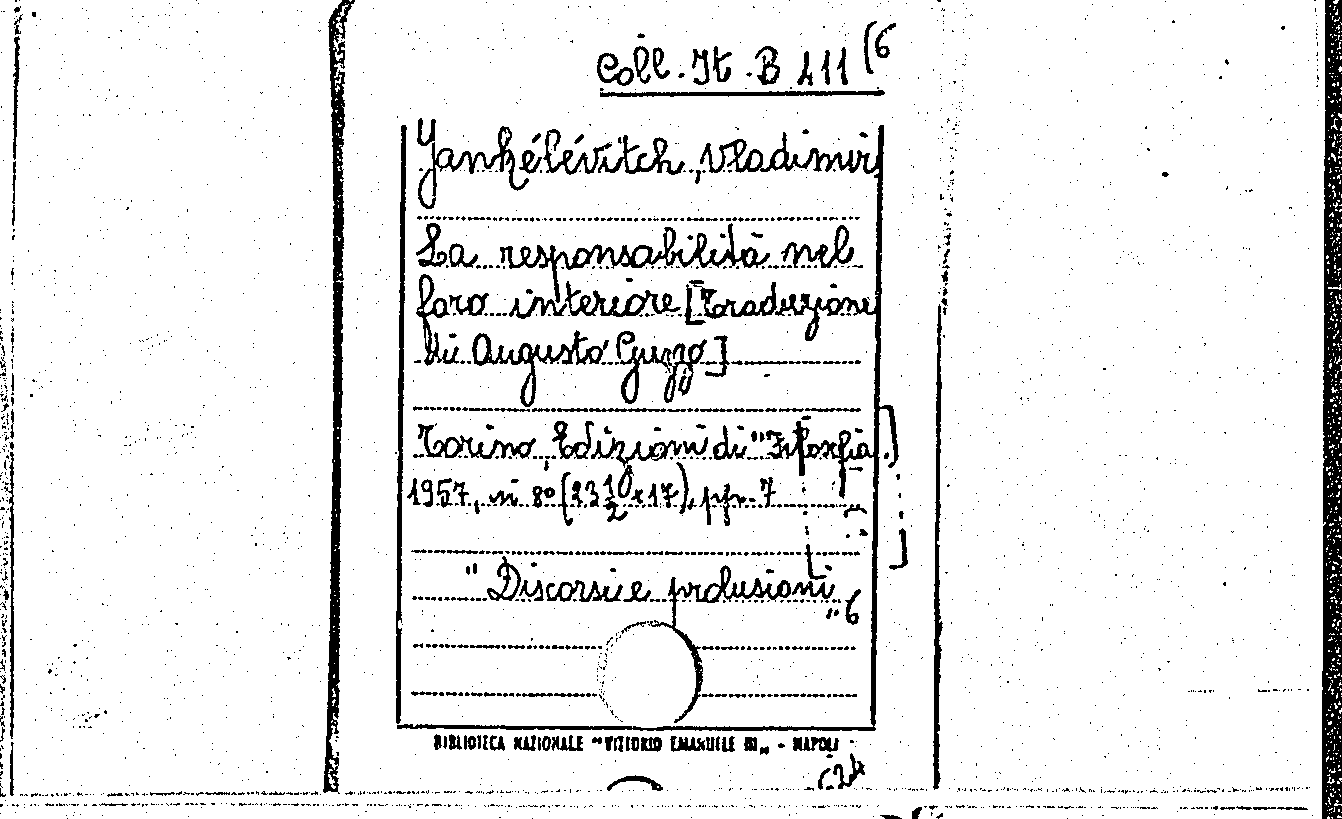 Coll. It. B 411 (6
Yankélévitch, Vladimir
La responsabilità nel
foro interiore [Traduzione
di Augusto Guzzo]
Torino, Edizioni di "Filosofia"
1957, in 8º (23 1/2 x 17), pp. 7
"Discorsi e prolusioni
" 6
BIBLIOTECA NAZIONALE "VITTORIO EMANUELE III" - NAPOLI